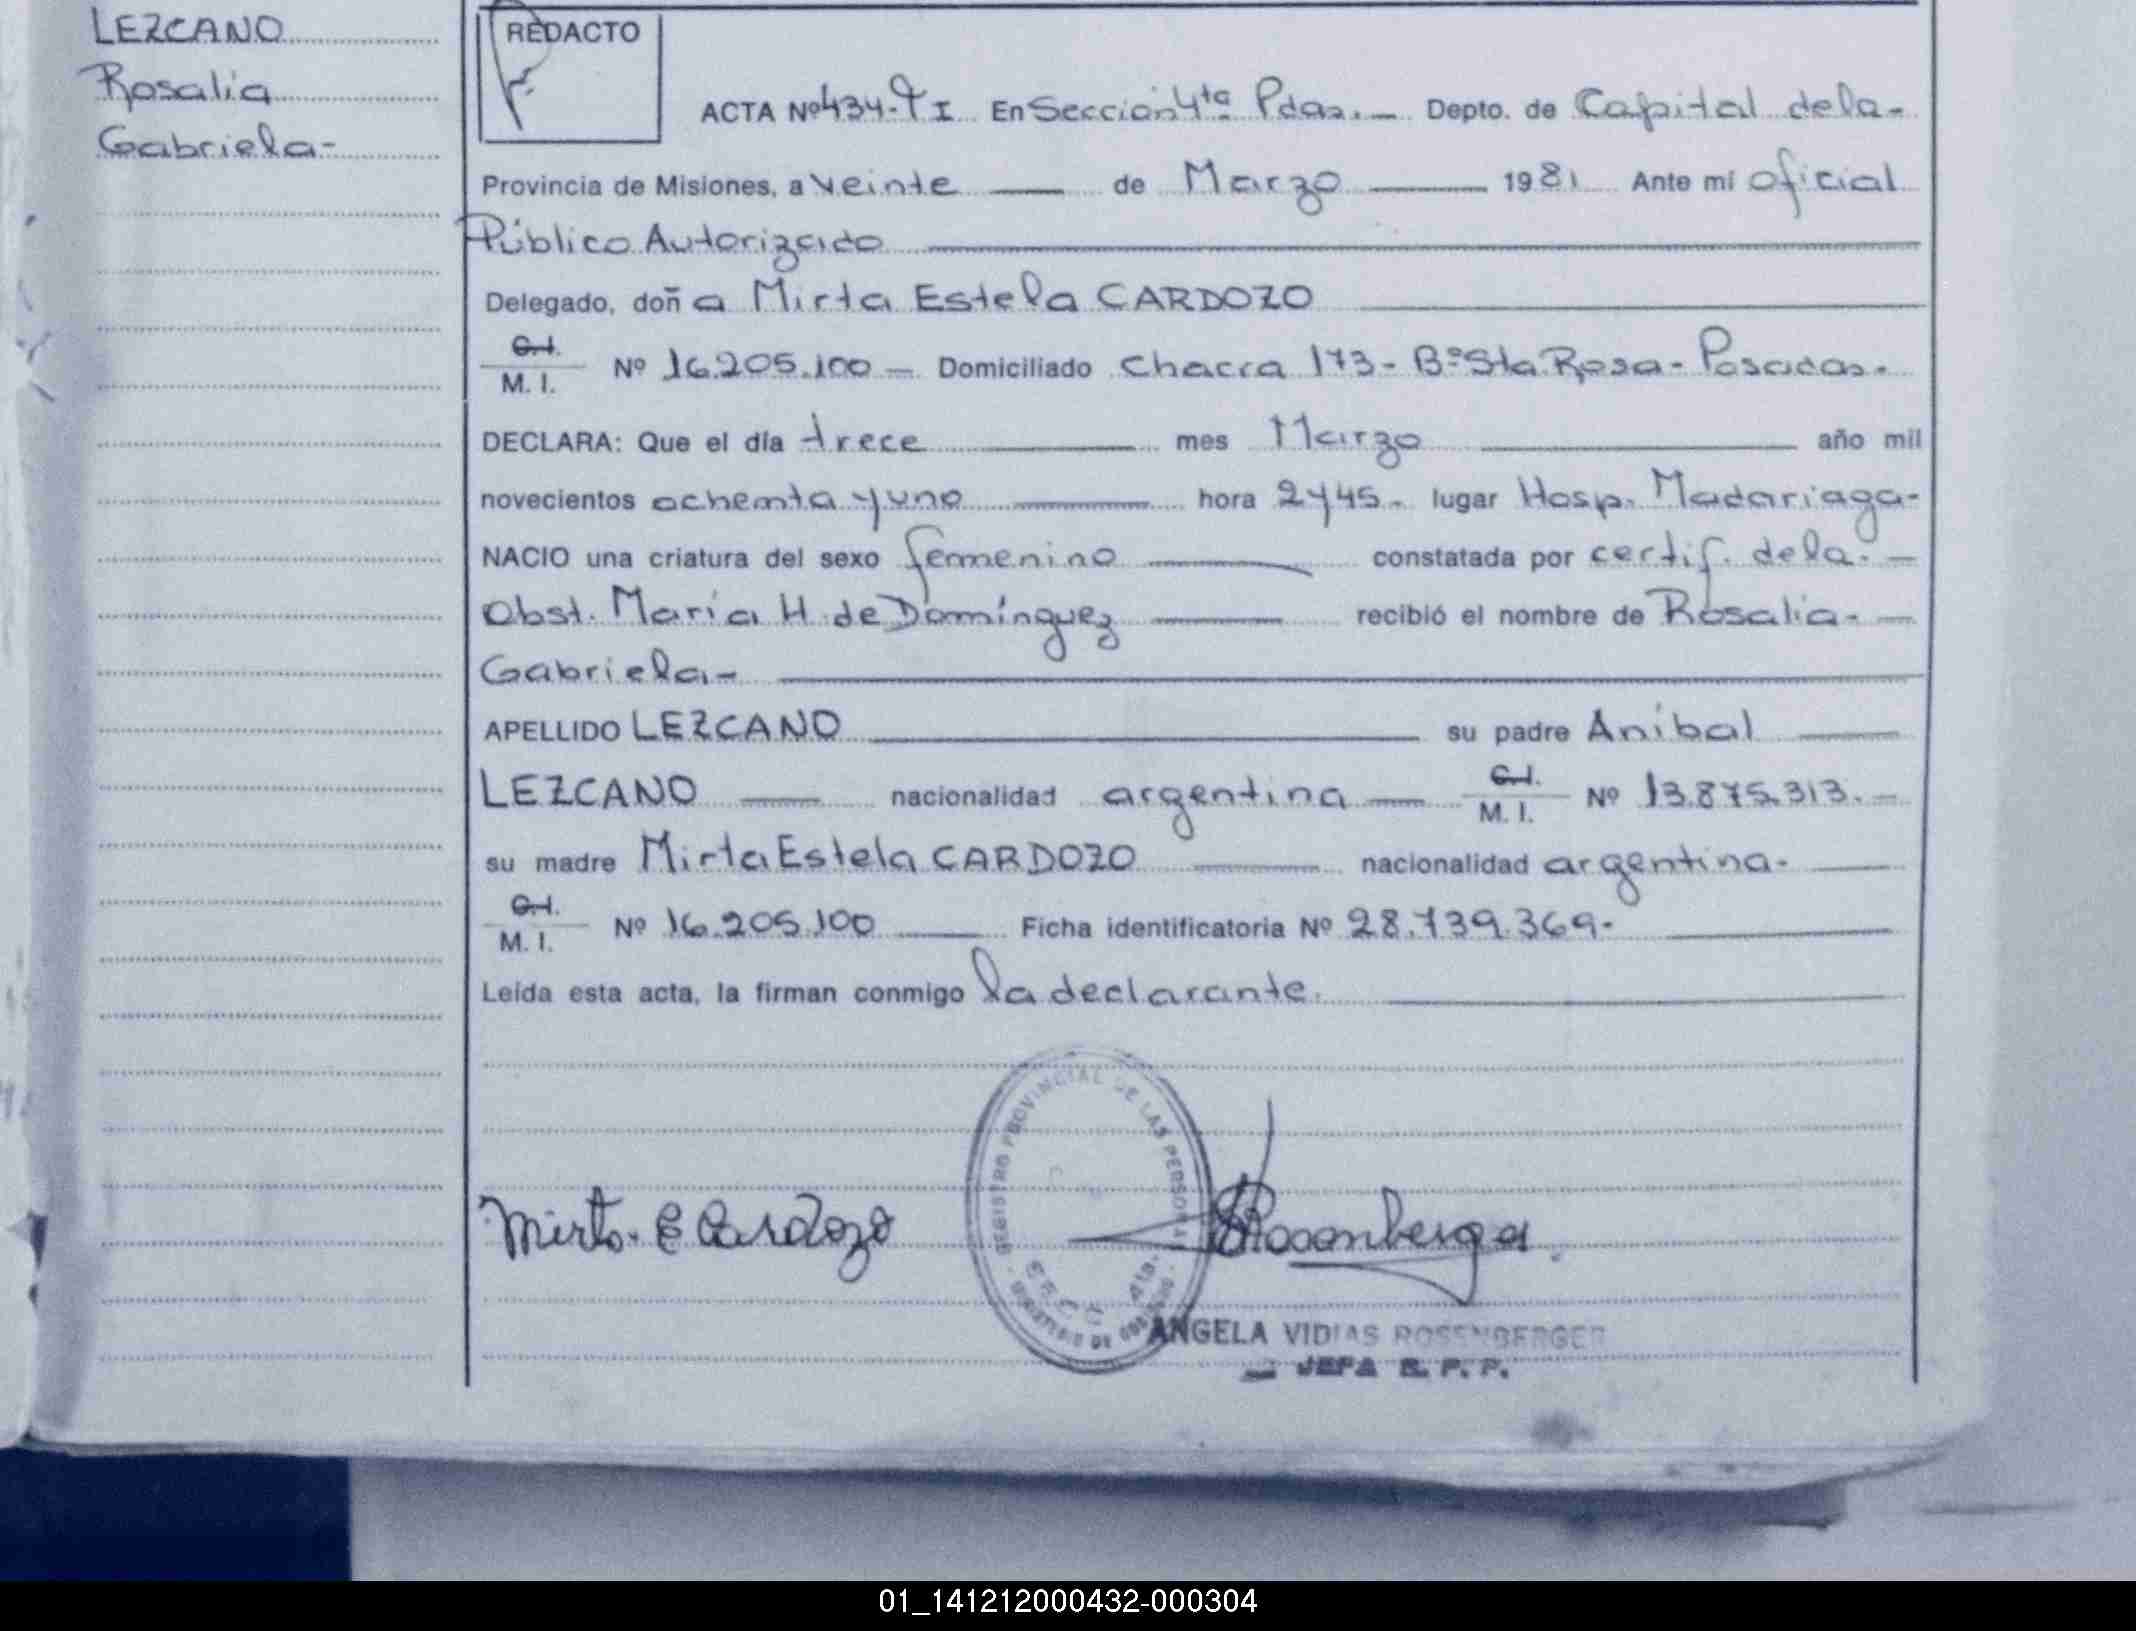 LEZCANO
Rosalia
Gabriela-
REDACTO
ACTA Nº 434-TI En Sección 4ta Pdas.- Depto. de Capital de la-
Provincia de Misiones, a veinte de Marzo 1981 Ante mí oficial
Público Autorizado
Delegado, doña Mirta Estela CARDOZO
C.I.
M. I. Nº 16.205.100 - Domiciliado Chacra 173 - Bº Sta Rosa - Posadas.
DECLARA: Que el día trece mes Marzo año mil
novecientos ochenta y uno hora 2y45. lugar Hosp. Madariaga-
NACIO una criatura del sexo femenino constatada por certif. de la. -
Obst. María H. de Domínguez recibió el nombre de Rosalia- -
Gabriela-
APELLIDO LEZCANO su padre Anibal
LEZCANO nacionalidad argentina C.I.
M. I. Nº 13.875.313. -
su madre Mirta Estela CARDOZO nacionalidad argentina-
C.I.
M. I. Nº 16.205.100 Ficha identificatoria Nº 28.739.369-
Leída esta acta, la firman conmigo la declarante.
REGISTRO PROVINCIAL DE LAS PERSONAS
Mirta E Cardozo
Rosenberger
ANGELA VIDIAS ROSENBERGER
JEFA R. P. P.
01_141212000432-000304